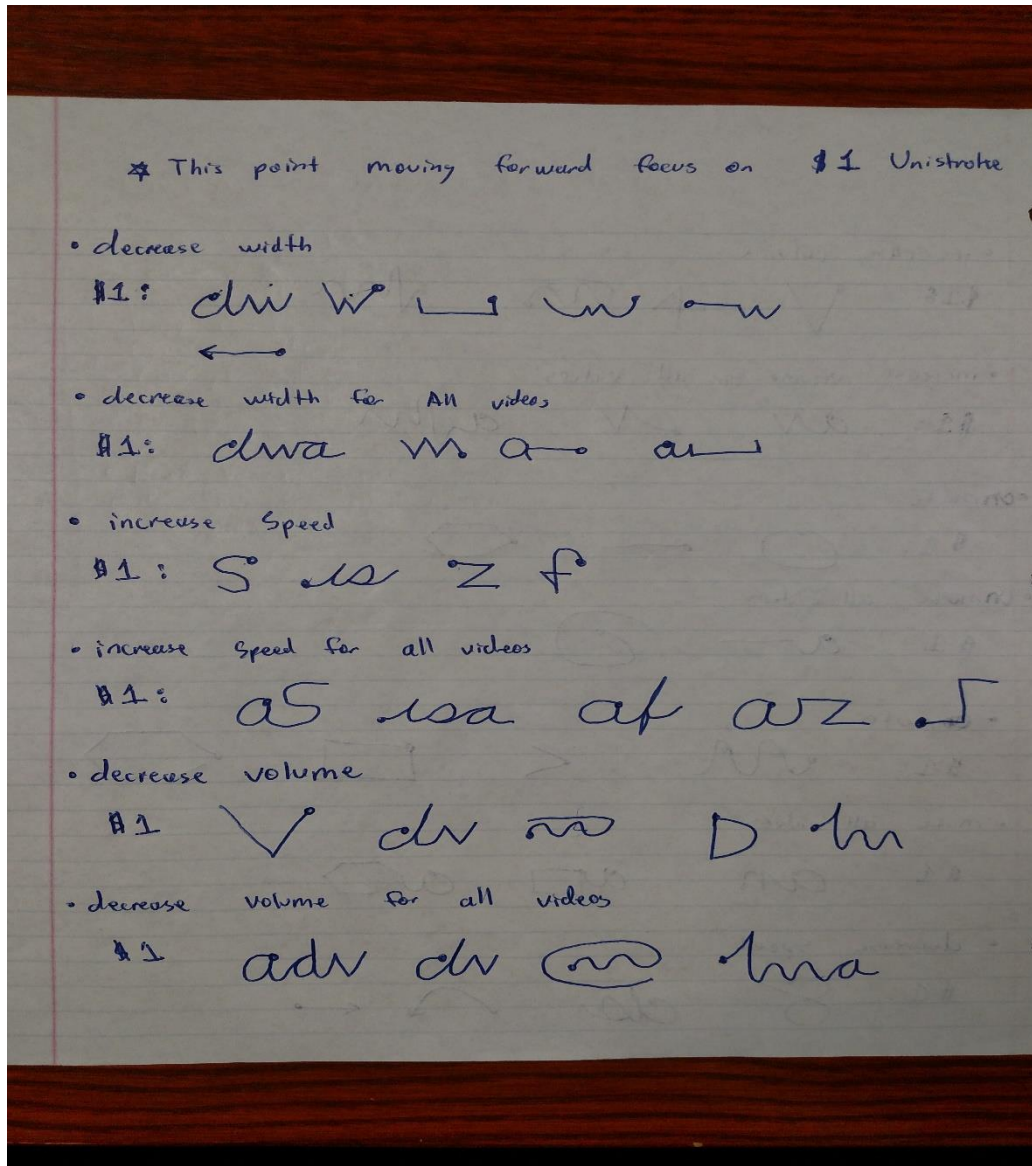 * This point moving forward focus on $1 Unistroke
• decrease width
$1: dw W w
• decrease width for All videos
$1: dwa
• increase Speed
$1: S is z f
• increase Speed for all videos
$1: aS isa af az
• decrease volume
$1 V dv D
• decrease volume for all videos
$1 adv dv